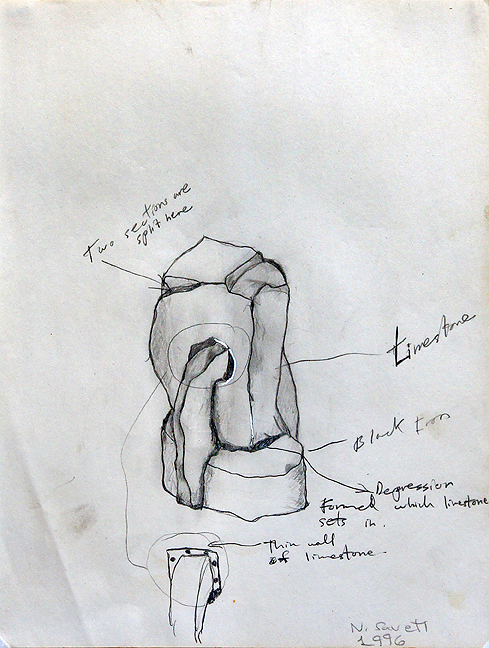 Two sections are
split here
Limestone
Black Iron
Depression
Formed which limestone
sets in.
Thin wall
of limestone
N. Savett
1996